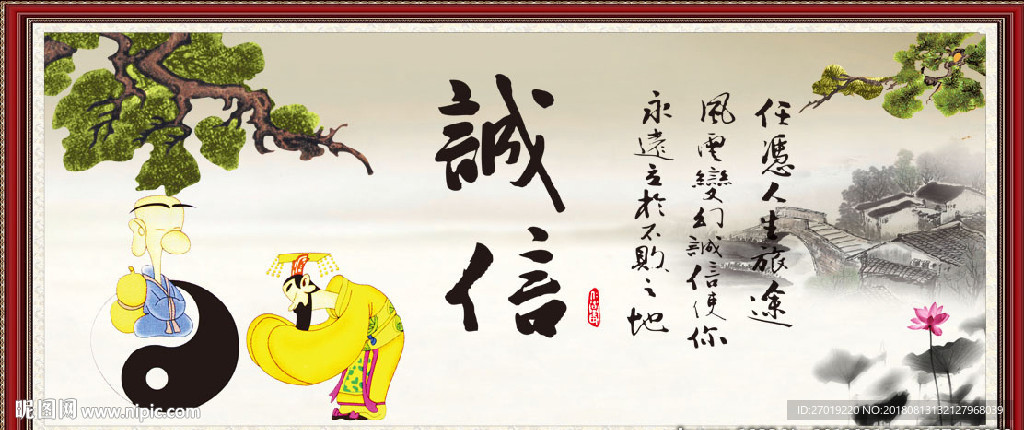 誠信
任憑人生旅途
風雲變幻誠信使你
永遠立於不敗之地
昵图网 www.nipic.com
ID:27019220 NO:20180813132127968039